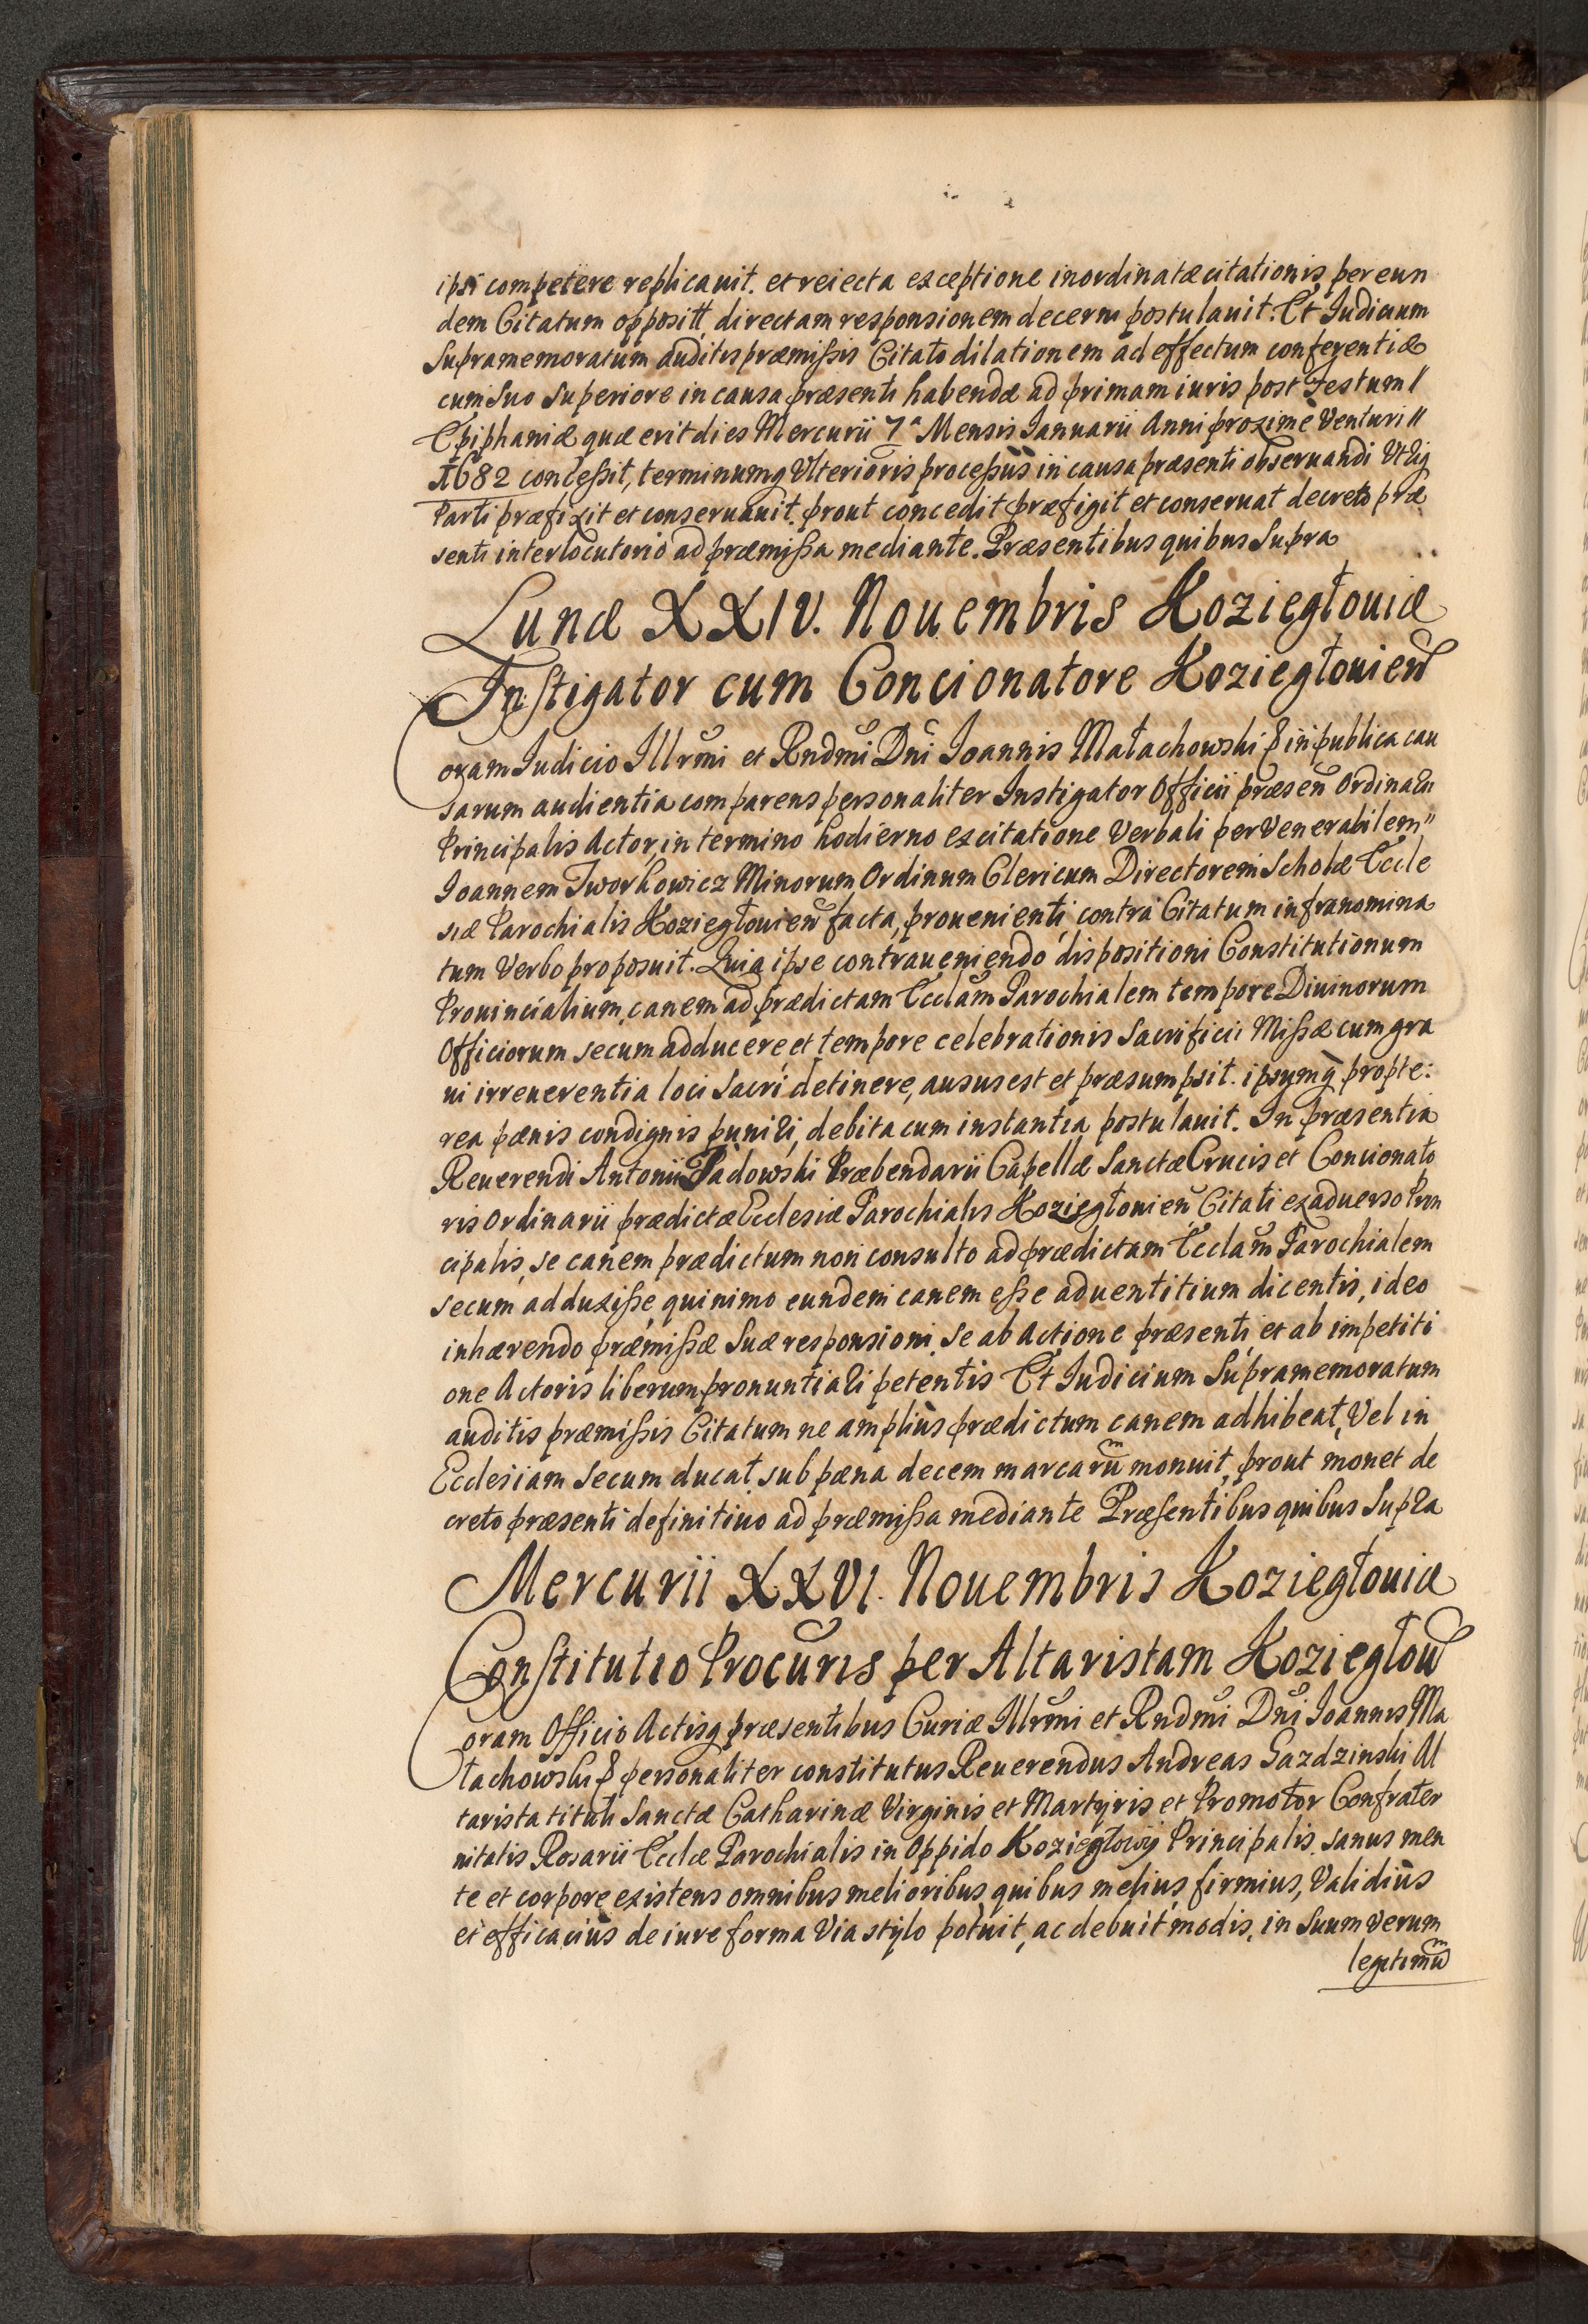 ipsi competere replicauit. et reiecta exceptione inordinatæ citationis, per eun
dem Citatum opposittæ, directam responsionem decerni postulauit. Et Iudicium
Supramemoratum auditis præmissis Citato dilationem ad effectum conferentiæ
cum Suo Superiore in causa præsenti habendæ ad primam iuris post Festum //
Epiphaniæ quæ erit dies Mercurii 7ª Mensis Ianuarii Anni proxime Venturi //
1682 concessit, terminumq Vlterioris processûs in causa præsenti obseruandi Vtriq
Parti præfixit et conseruauit. prout concedit præfigit et conseruat decreto præ
senti interlocutorio ad præmissa mediante. Præsentibus quibus Supra
Lunæ XXIV. Nouembris Koziegłouiæ
Instigator cum Concionatore Koziegłouien
Coram Iudicio Illrmi et Rndmi Dni Ioannis Małachowski & in publica cau
sarum audientia comparens personaliter Instigator Officii præsen Ordinarius
Principalis Actor, in termino hodierno ex citatione Verbali per Venerabilem //
Ioannem Tworkowicz Minorum Ordinum Clericum Directorem Scholæ Eccle
siæ Parochialis Koziegłouien facta, prouenienti, contra Citatum infranomina
tum Verbo proposuit. Quia ipse contraueniendo dispositioni Constitutionum
Prouincialium, canem ad prædictam Ecclam Parochialem tempore Diuinorum
Officiorum secum adducere, et tempore celebrationis Sacrificii Missæ cum gra
ui irreuerentia loci Sacri detinere, ausus est et præsumpsit. ipsumq propte:
rea pænis condignis puniri, debita cum instantia postulauit. In præsentia
Reuerendi Antonii Padowski Præbendarii Capellæ Sanctæ Crucis et Concionato
ris Ordinarii prædictæ Ecclesiæ Parochialis Koziegłouien Citati ex aduerso Prin
cipalis, se canem prædictum non consulto ad prædictam Ecclam Parochialem
secum adduxisse, quinimo eundem canem esse aduentitium dicentis, ideo
inhærendo præmissæ Suæ responsioni, se ab Actione præsenti et ab impetiti
one Actoris liberum pronuntiari petentis Et Iudicium Supramemoratum
auditis præmissis Citatum ne amplius prædictum canem adhibeat, Vel in
Ecclesiam Secum ducat, sub pæna decem marcarum monuit, prout monet de
creto præsenti definitiuo ad præmissa mediante Præsentibus quibus Supra
Mercurii XXVI. Nouembris Koziegłouiæ
Constitutio Procuris per Altaristam Koziegłou
Coram Officio Actisq præsentibus Curiæ Illrmi et Rndmi Dni Ioannis Ma
łachowski & personaliter constitutus Reuerendus Andreas Gazdzinski Al
tarista tituli Sanctæ Catharinæ Virginis et Martyris et Promotor Confrater
nitatis Rosarii Ecclæ Parochialis in Oppido Koziegłowy Principalis, sanus men
te et corpore existens omnibus melioribus quibus melius, firmius, Validius
et efficacius de iure forma Via stylo potuit, ac debuit modis, in Suum verum
legitimum